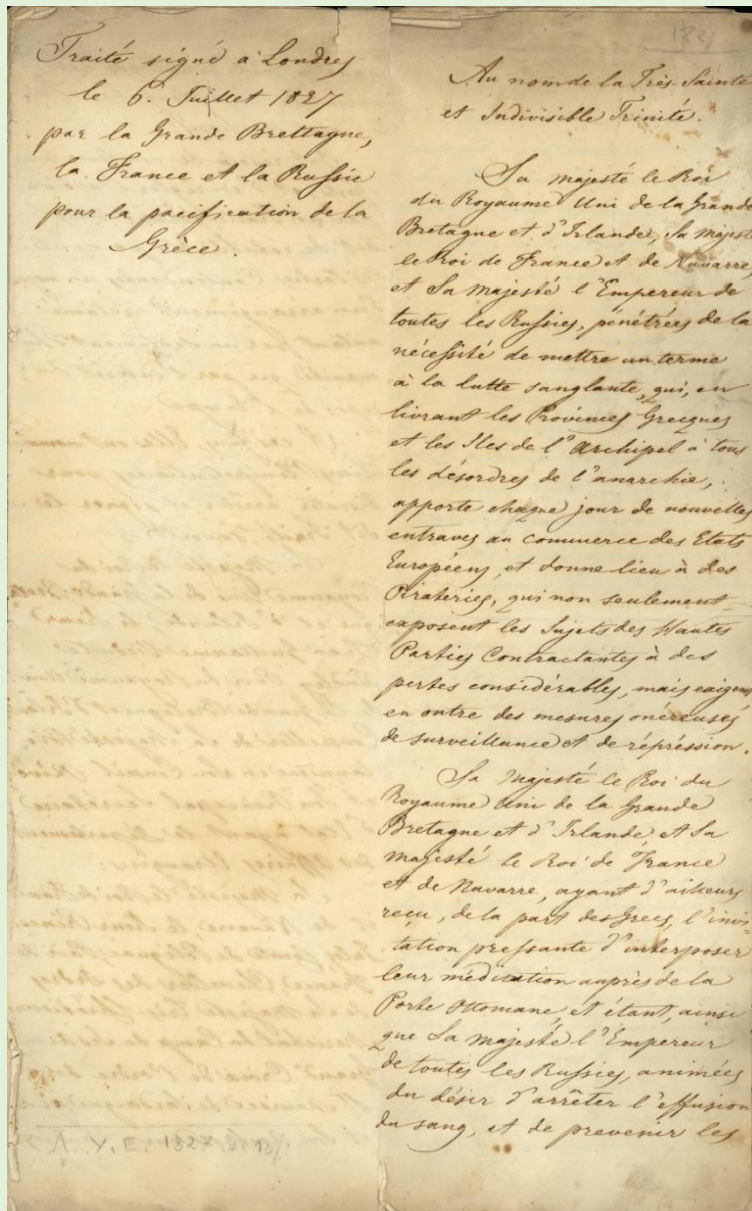 Traité signé à Londres
le 6. Juillet 1827
par la Grande Brettagne,
la France et la Russie
pour la pacification de la
Grèce.
182
Au nom de la Très-Sainte
et Indivisible Trinité.
Sa majesté le Roi
du Royaume Uni de la Grande
Bretagne et d'Irlande, Sa Majesté
le Roi de France et de Navarre,
et Sa Majesté l'Empereur de
toutes les Russies, pénétrées de la
nécéssité de mettre un terme
à la lutte sanglante, qui, en
livrant les Provinces Grecques
et les Iles de l'Archipel à tous
les désordres de l'anarchie,
apporte chaque jour de nouvelles
entraves au commerce des Etats
Européens, et donne lieu à des
Pirateries, qui non seulement
exposent les Sujets des Hautes
Parties Contractantes à des
pertes considérables, mais exigent
en outre des mesures onéreuses
de surveillance et de répréssion.
Sa Majesté le Roi du
Royaume Uni de la Grande
Bretagne et d'Irlande, et Sa
majesté le Roi de France
et de Navarre, ayant d'ailleurs
reçu, de la part des Grecs, l'invi=
tation pressante d'interposer
leur médiation auprès de la
Porte Ottomane, et étant, ainsi
que Sa majesté l'Empereur
de toutes les Russies, animées
du désir d'arrêter l'effusion
du sang, et de prevenir les
Α. Υ. Ε. 1827.